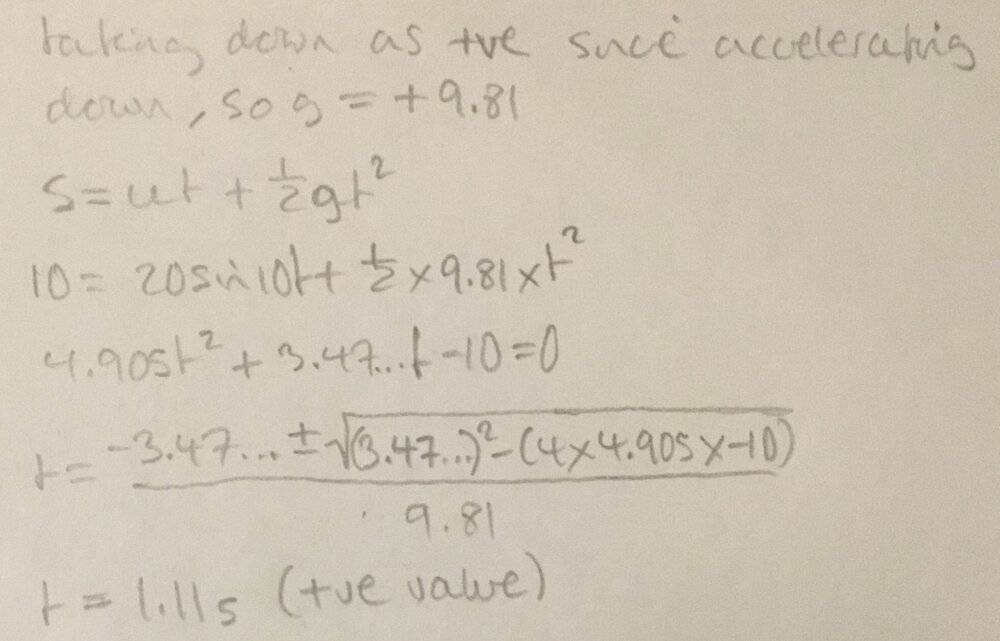 taking down as +ve since accelerating
down, so g = + 9.81
s = ut + ½gt²
10 = 20sin10t + ½ × 9.81 × t²
4.905t² + 3.47...t - 10 = 0
t = -3.47... ± √(3.47...)² - (4 × 4.905 × -10) / 9.81
t = 1.11s (+ve value)